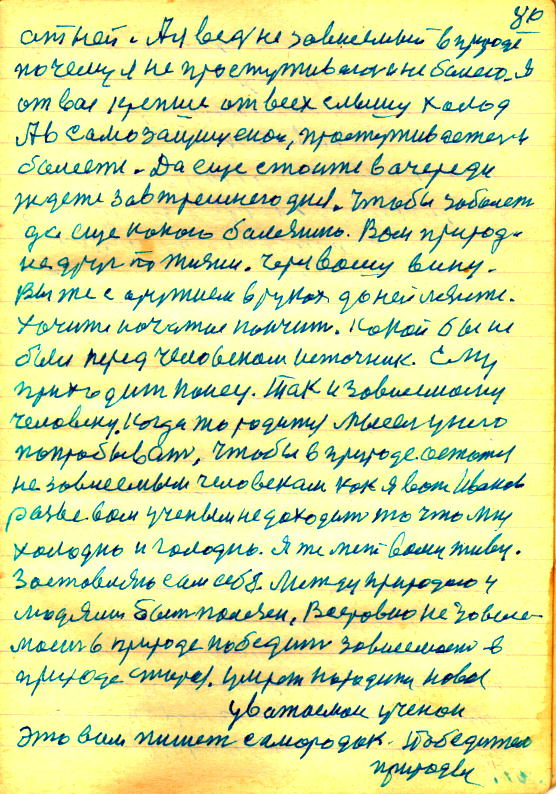 40
от ней. А я ведь не зависемый в природе
почему я не проступживаюся не болею. Я
от вас крепше от всех слышу холод
А в самозащищеной, проступживаетеся
болеете. Да еще стоите в очереди
ждете завтрешнего дня. Чтобы заболеть
да еще какого болезнию. Вам природа
не друг по жизни. Через вашу вину.
Вы же с аружием в руках до ней лезите.
Хочити начатое кончить. Какой бы не
были перед человеком источник. Ему
приходит конец. Так и зависемому
человеку. Когда то родится мысль у него
попробывать, чтобы в природе остатся
не зависемым человекам как я вот Иванов
разве вам ученым не доходит то что мну
холодно и голодно. Я же меж вами живу.
Заставляю сам себя. Между природою и
людями быть полезен, Всеровно не зависе-
мость в природе победит зависемость в
природе старое умрет народится новое
уважаемои ученои
Это вам пишет самородок. Победитель
природы